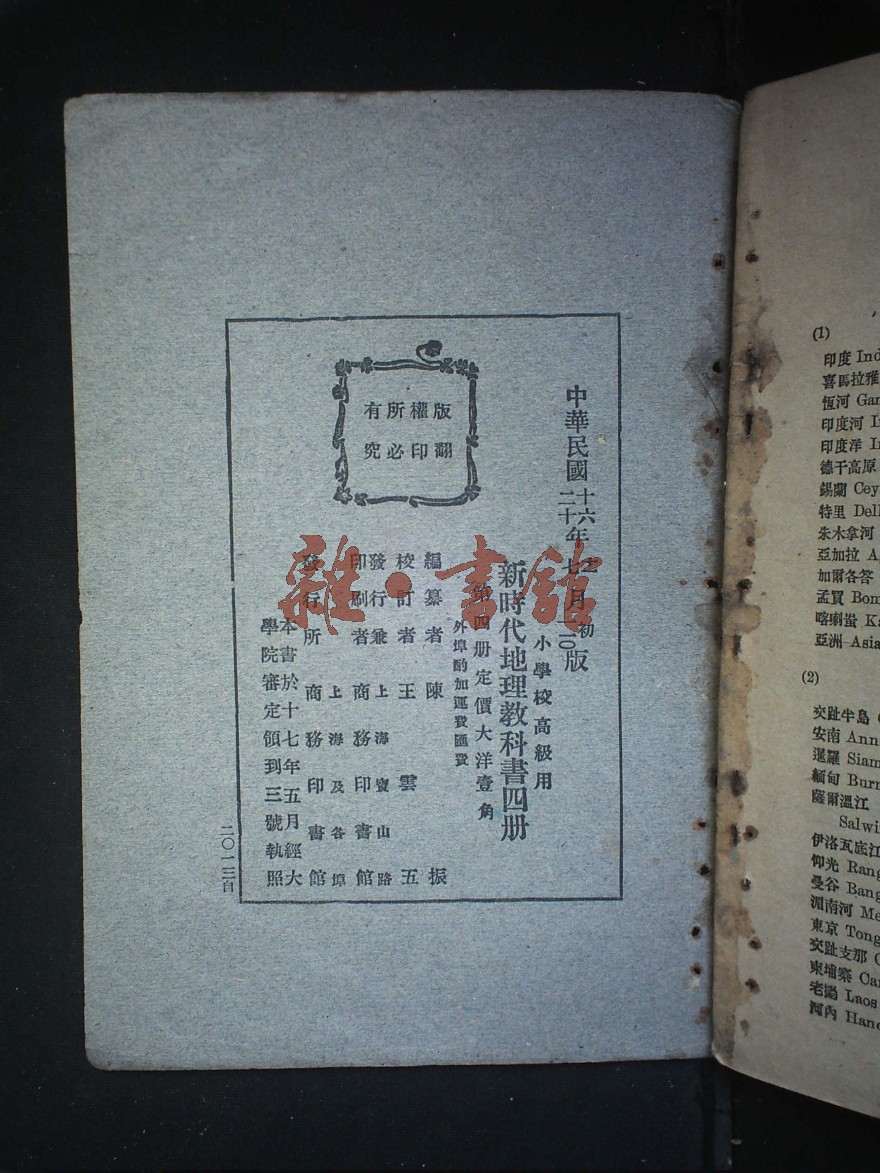 中華民國十六年
二十年七月初版
新時代地理教科書四册
小學校高級用
第四册定價大洋壹角
外埠酌加運費匯費
編纂者 陳振
校訂者 王雲五
發行兼 上海寶山路
印刷者 商務印書館
發行所 上海及各埠
商務印書館
本書於十七年五月經大
學院審定領到三號執照
版權所有
翻印必究
二〇一三自
雜·書館
(1)
印度 Ind
喜馬拉雅
恆河 Gan
印度河 I
印度洋 In
德干高原
錫蘭 Cey
特里 Del
朱木拿河
亞加拉 A
加爾各答
孟買 Bom
喀喇蚩 Ka
亞洲 Asia
(2)
交趾半島
安南 Ann
暹羅 Siam
緬甸 Burn
薩爾溫江
Salwi
伊洛瓦底江
仰光 Rang
曼谷 Bang
湄南河 Me
東京 Tong
交趾支那
柬埔寨 Ca
老撾 Laos
河內 Hano